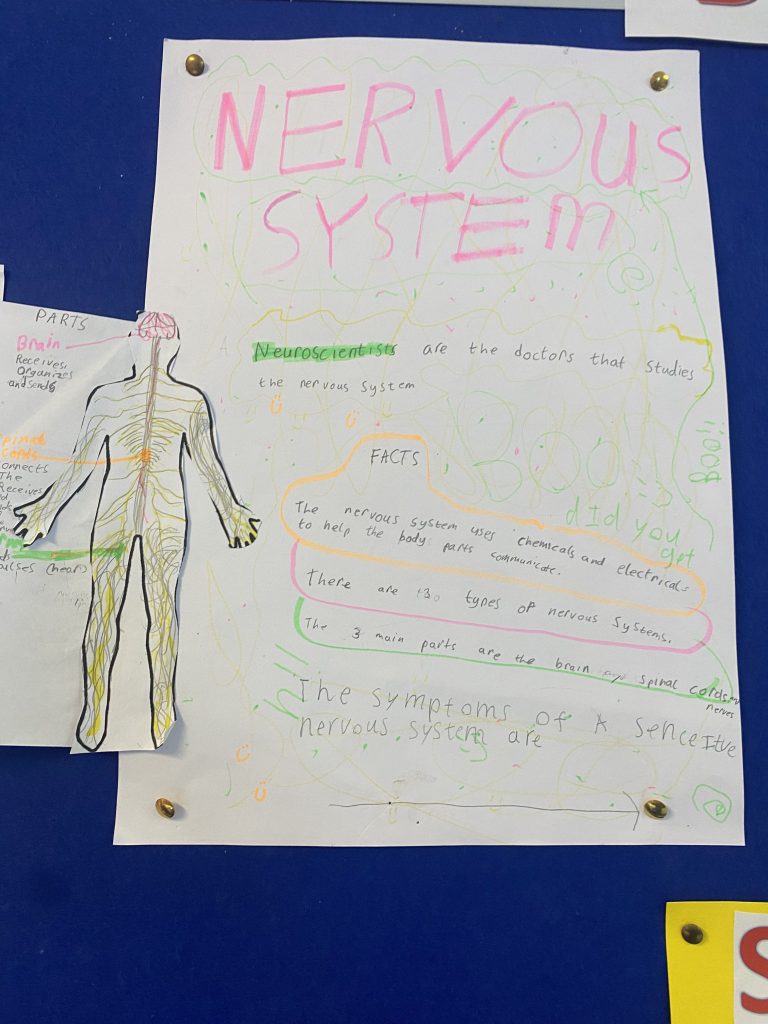 NERVOUS
SYSTEM
Neuroscientists are the doctors that studies
the nervous system
FACTS
The nervous system uses chemicals and electricals
to help the body parts communicate.
There are types of nervous systems.
The 3 main parts are the brain spinal cords
nerves
The symptoms of A senceitve
nervous system are
did you
get
hi!
PARTS
Brain
Receives,
Organizes
and sends
Cords
onnects
The
Receives
pulses (hear)
S